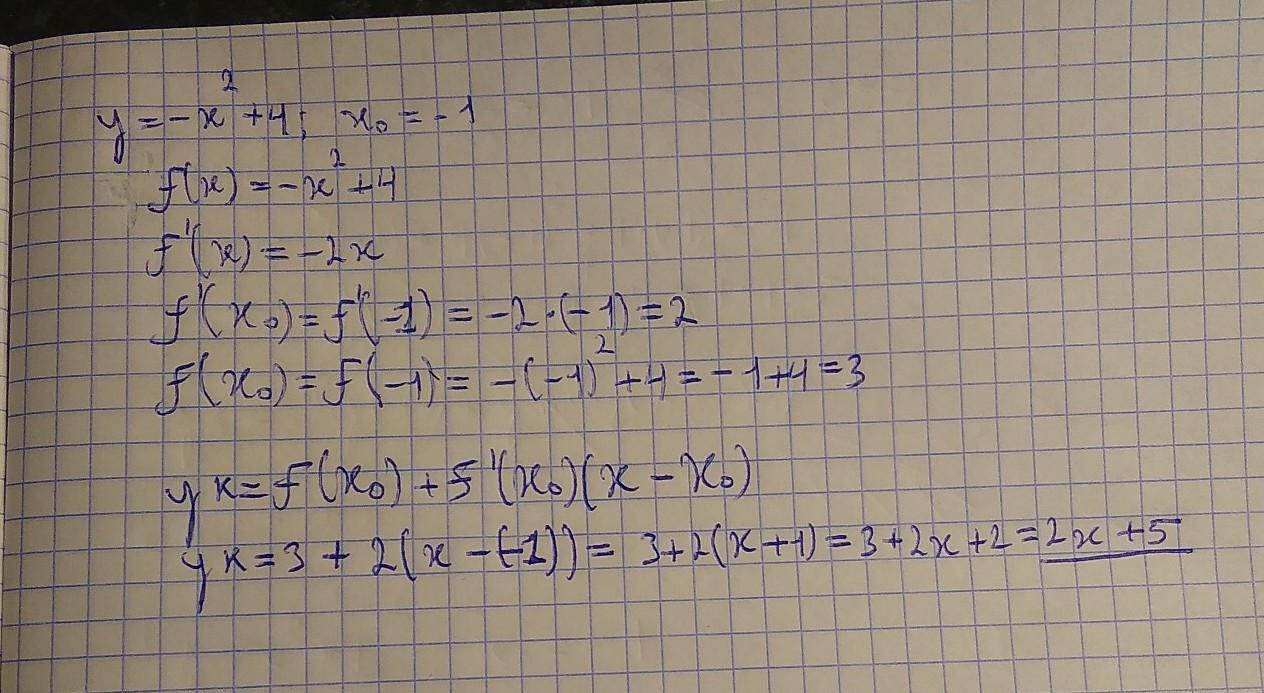 y = -x² + 4; x₀ = -1
f(x) = -x² + 4
f'(x) = -2x
f'(x₀) = f'(-1) = -2·(-1) = 2
f(x₀) = f(-1) = -(-1)² + 4 = -1+4 = 3
y к = f(x₀) + f'(x₀)(x - x₀)
y к = 3 + 2(x - (-1)) = 3+2(x+1) = 3+2x+2 = 2x+5